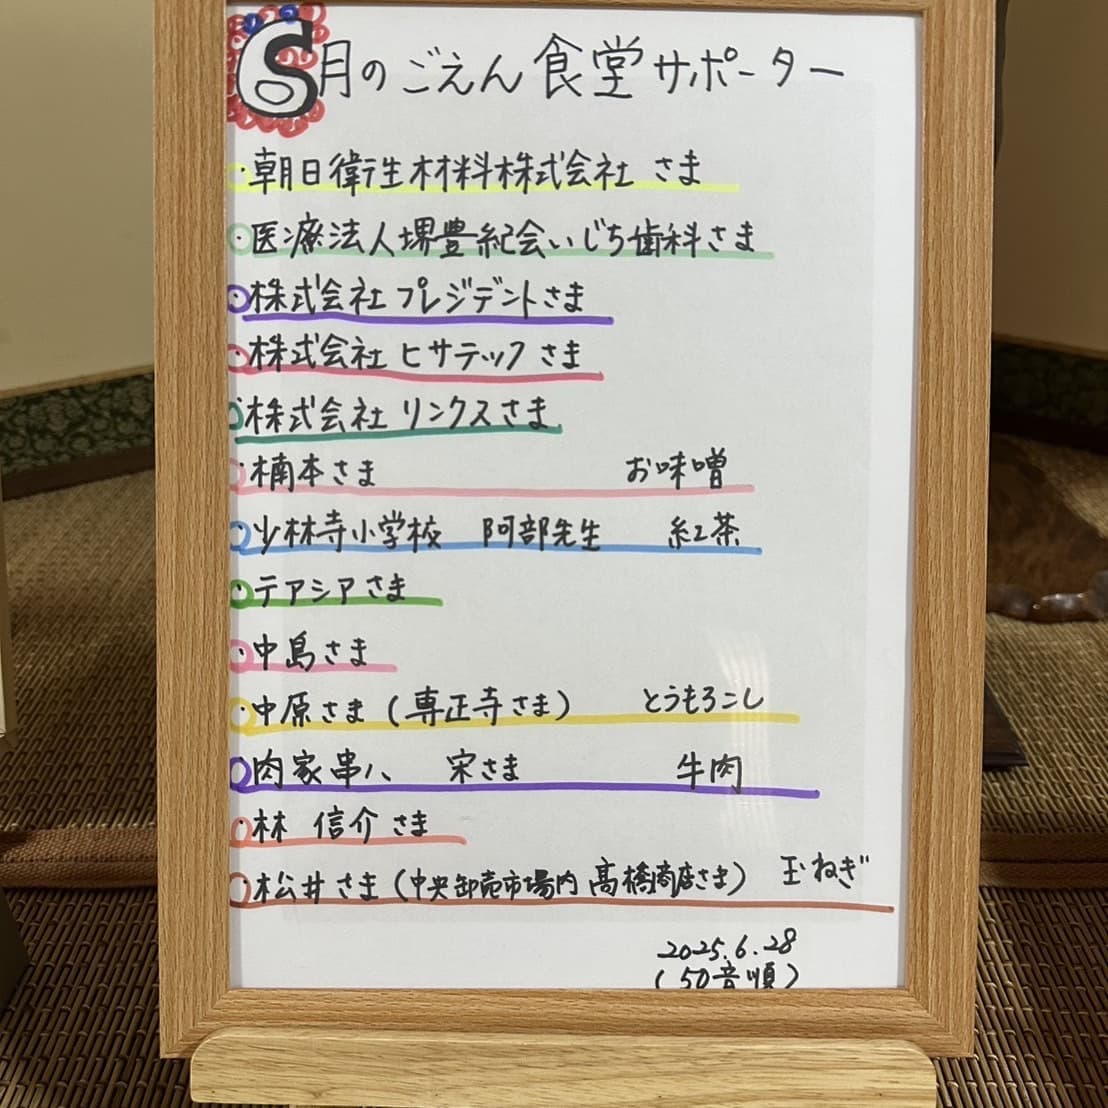 6月のごえん食堂サポーター
・朝日衛生材料株式会社 さま
・医療法人堺豊紀会いじち歯科さま
・株式会社プレジデントさま
・株式会社 ヒサテック さま
・株式会社 リンクスさま
・楠本さま お味噌
・少林寺小学校 阿部先生 紅茶
・テアシアさま
・中島さま
・中原さま (専正寺さま) とうもろこし
・肉家串八 宋さま 牛肉
・林 信介 さま
・松井さま (中央卸売市場内 髙橋商店さま) 玉ねぎ
2025.6.28
(50音順)